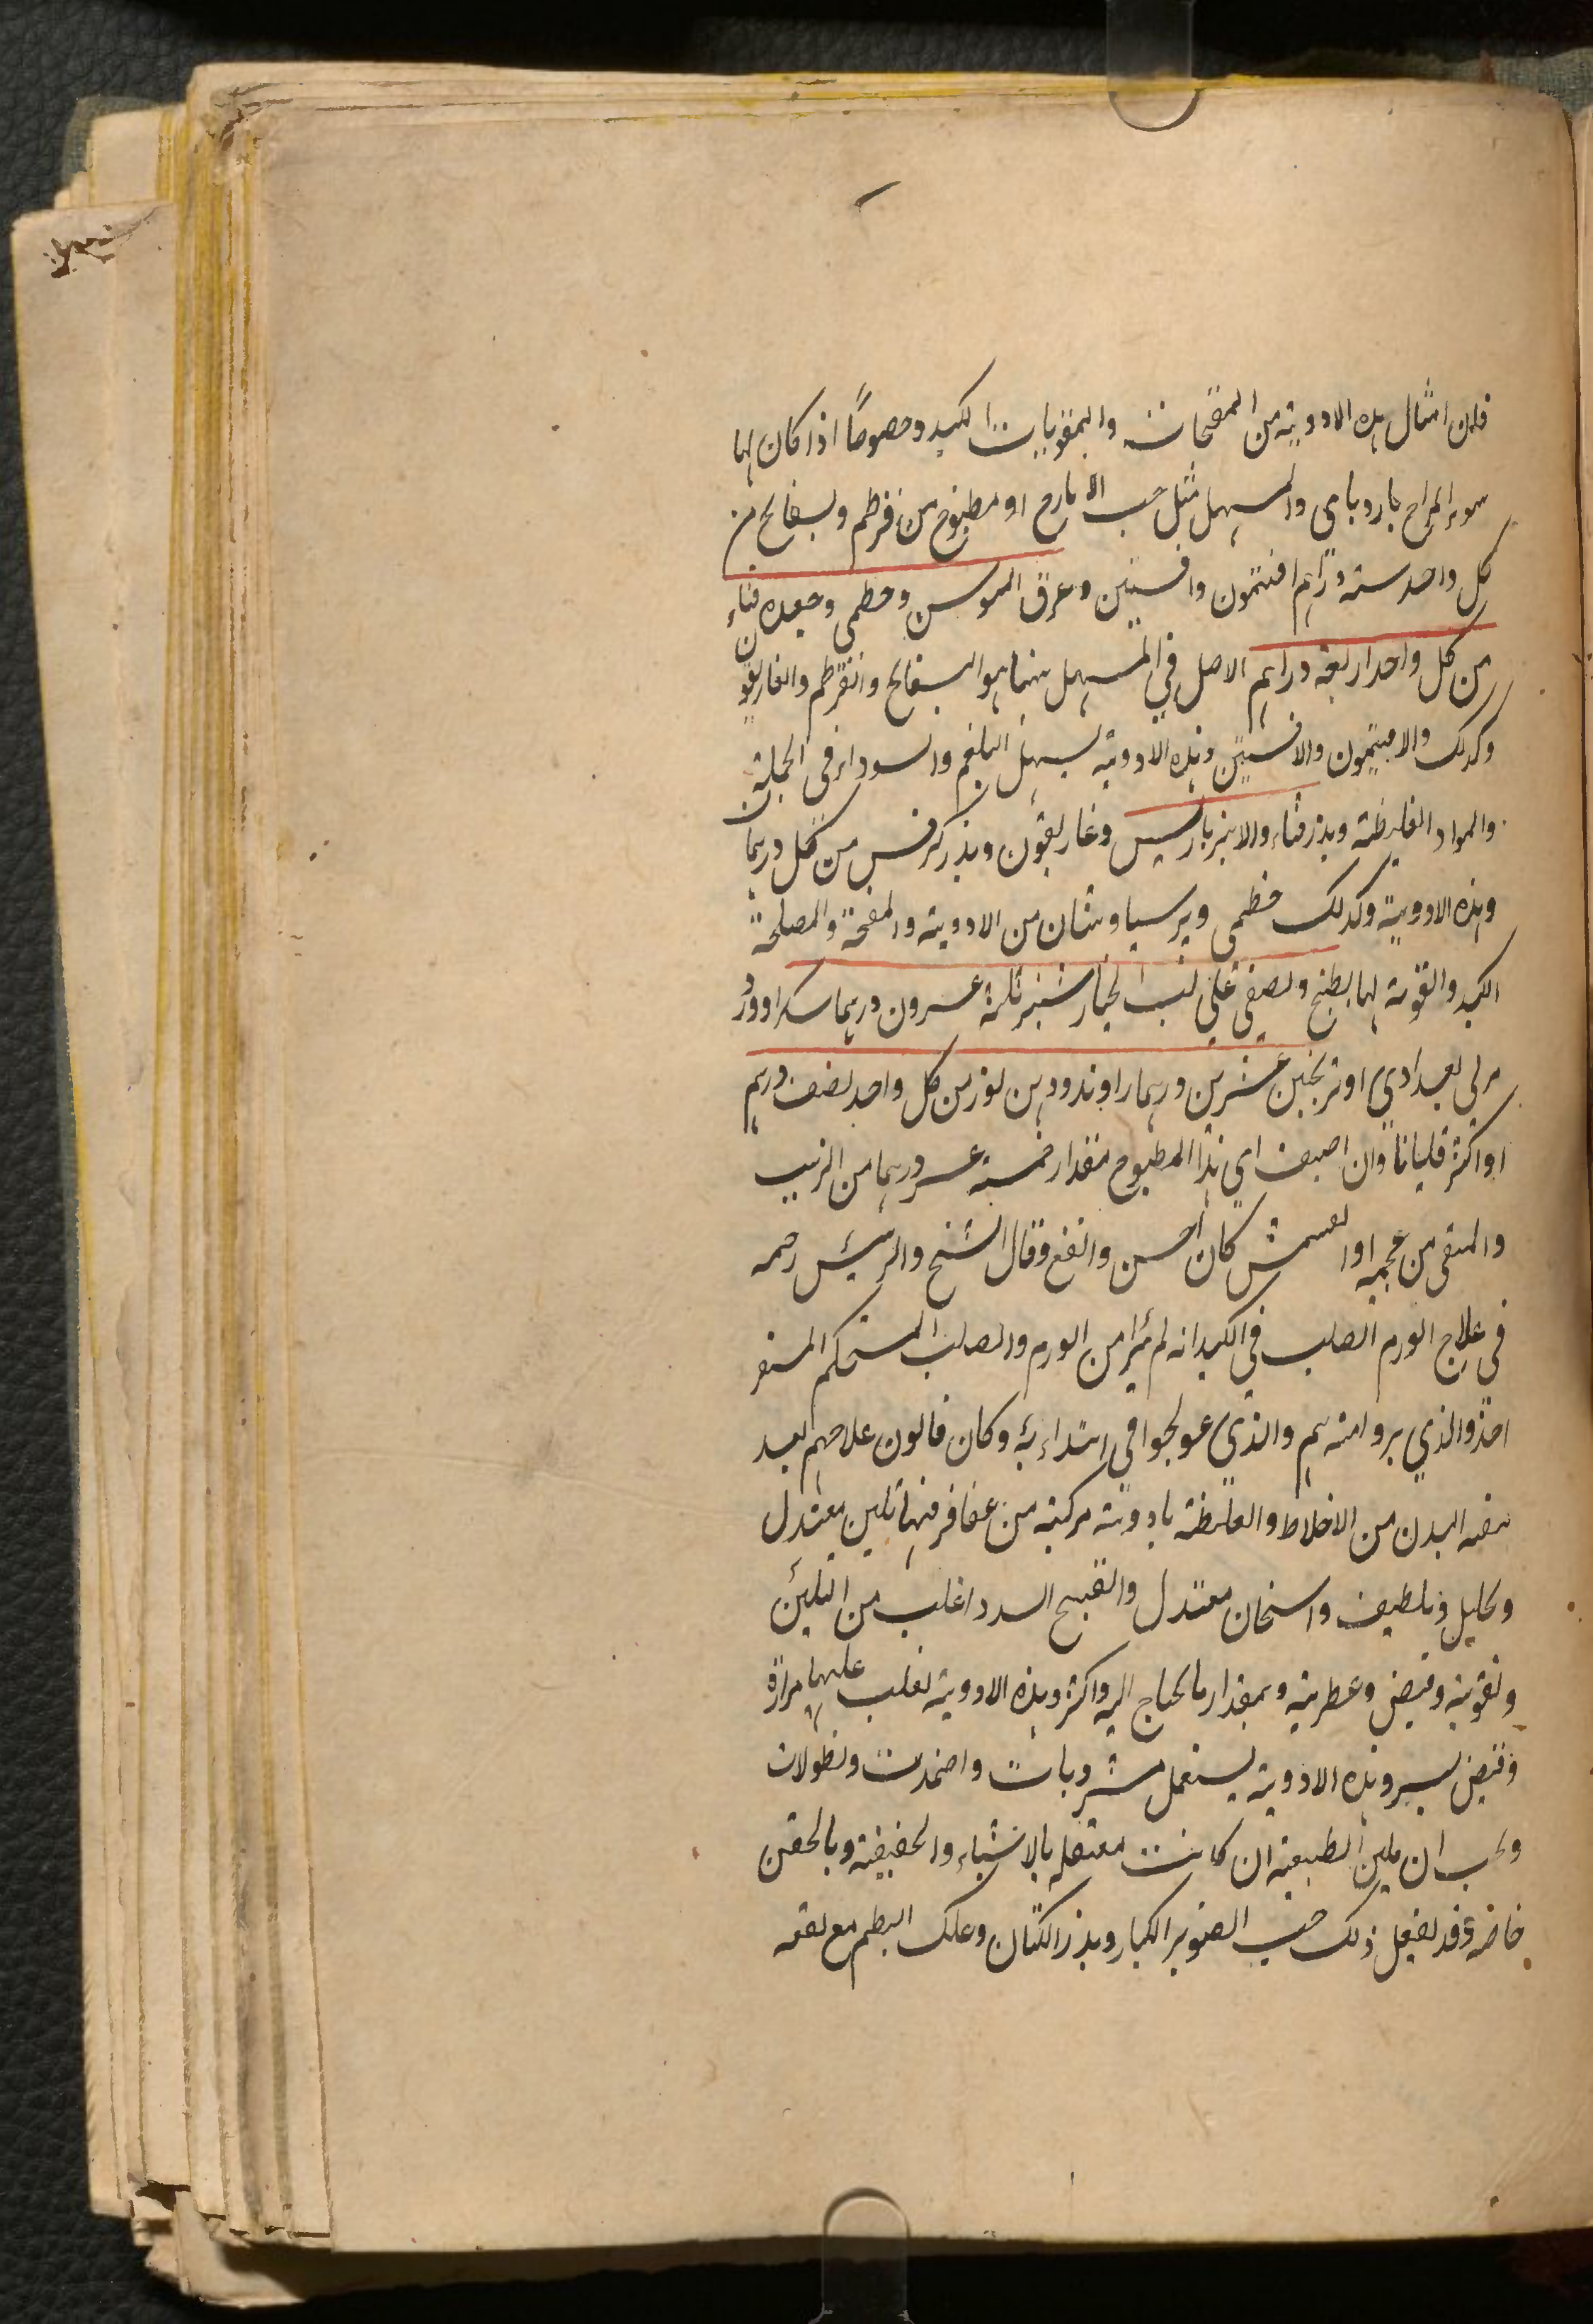 فلان امثال هذه الادوية من المفتحات والمقويات الكبد وخصوصاً اذا كان لها
سوء المزاج بارد بادى والمسهل مثل حب الايارج او مطبوخ من قرطم وبسفايج من
كل واحد ستة دراهم افتيمون وافسنتين وعرق السوس وخطمى وجعده قثاء
من كل واحد اربعة دراهم الاصل في المسهل هنا هو البسفايج والقرطم والغاريقون
وكذلك والافيتمون والافسنتين وهذه الادوية يسهل البلغم والسوداء في الجملة
والمواد الغليظة وبذر قثاء والانبرباريس وغاريقون وبذر كرفس من كل درهما
وهذه الادوية وكذلك خطمى وبرسياوشان من الادوية والمفتحة والمصلحة
الكبد والقوية لها يطبخ ويصفى على لب الخيار شنبر ثلثة عشرون درهما سكرا وورد
مربى بغدادي او ترنجبين عشرين درهما راوند ودهن لوز من كل واحد نصف درهم
او اكثر قليانا وان اضيف اى هذا المطبوخ مقدار خمسة عشر درهما من الزبيب
والمنقى من عجمه او المشمش كان احسن وانفع وقال الشيخ والرئيس رحمه
في علاج الورم الصلب في الكبد انه لم يبرا من الورم والصلب المستحكم المستقر
احد والذي بروا منه هم والذي عولجوا في ابتداء به وكان قانون علاجهم بعد
تنقيه البدن من الاخلاط والغليظة بادوية مركبة من عقاقر فيها تليين معتدل
وتحليل وتلطيف واسخان معتدل والقبح السدد اغلب من التليين
وتقوية وقبض وعطرية وبمقدار ما يحتاج اليه واكثر وهذه الادوية تغلب عليها مرارة
وقبض يسير وهذه الادوية يستعمل مشروبات واضمدت ونطولات
ويجب ان يلين الطبيعة ان كانت معتقله بالاشياء والخفيفة وبالحقن
خاصة وقد يفعل ذلك حب الصنوبر الكبار وبذر الكتان وعلك البطم مع نقعه